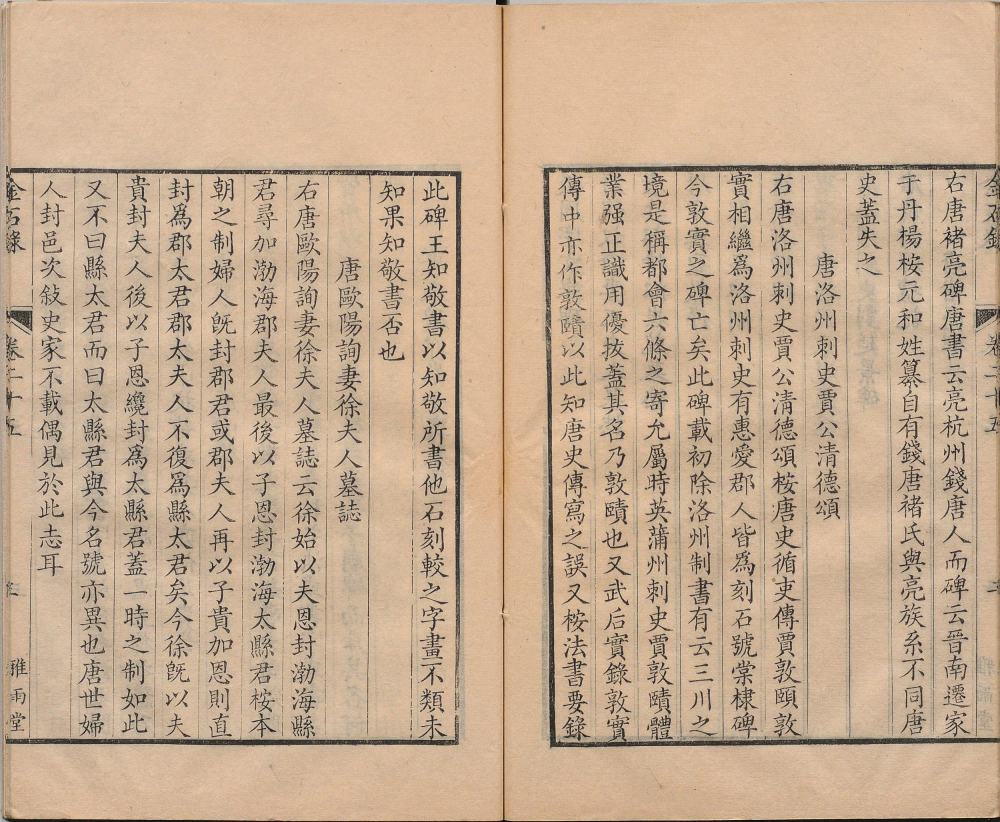 金石錄
卷二十五
右唐褚亮碑唐書云亮杭州錢唐人而碑云晉南遷家
于丹楊桉元和姓纂自有錢唐褚氏與亮族系不同唐
史蓋失之
唐洛州刺史賈公清德頌
右唐洛州刺史賈公清德頌桉唐史循吏傳賈敦頤敦
實相繼爲洛州刺史有惠愛郡人皆爲刻石號棠棣碑
今敦實之碑亡矣此碑載初除洛州制書有云三川之
境是稱都會六條之寄允屬時英蒲州刺史賈敦賾體
業强正識用優拔蓋其名乃敦賾也又武后實錄敦實
傳中亦作敦賾以此知唐史傳寫之誤又桉法書要錄
此碑王知敬書以知敬所書他石刻較之字畫不類未
知果知敬書否也
唐歐陽詢妻徐夫人墓誌
右唐歐陽詢妻徐夫人墓誌云徐始以夫恩封渤海縣
君尋加渤海郡夫人最後以子恩封渤海太縣君桉本
朝之制婦人既封郡君或郡夫人再以子貴加恩則直
封爲郡太君郡太夫人不復爲縣太君矣今徐既以夫
貴封夫人後以子恩纔封爲太縣君蓋一時之制如此
又不曰縣太君而曰太縣君與今名號亦異也唐世婦
人封邑次敍史家不載偶見於此志耳
金石錄
卷二十五
雅雨堂